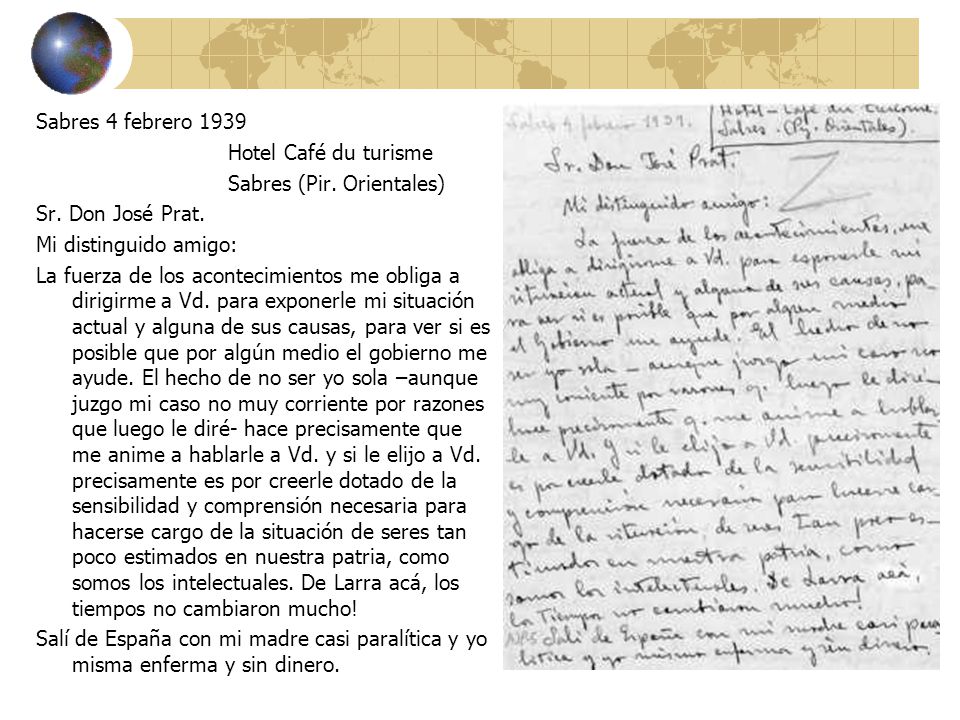 Sabres 4 febrero 1939
Hotel Café du turisme
Sabres (Pir. Orientales)
Sr. Don José Prat.
Mi distinguido amigo:
La fuerza de los acontecimientos me obliga a
dirigirme a Vd. para exponerle mi situación
actual y alguna de sus causas, para ver si es
posible que por algún medio el gobierno me
ayude. El hecho de no ser yo sola –aunque
juzgo mi caso no muy corriente por razones
que luego le diré- hace precisamente que
me anime a hablarle a Vd. y si le elijo a Vd.
precisamente es por creerle dotado de la
sensibilidad y comprensión necesaria para
hacerse cargo de la situación de seres tan
poco estimados en nuestra patria, como
somos los intelectuales. De Larra acá, los
tiempos no cambiaron mucho!
Salí de España con mi madre casi paralítica y yo
misma enferma y sin dinero.
Hotel – Café du turisme.
Sabres 4 febrero 1939.
Sabres. (Py. Orientales).
Sr. Don José Prat.
Mi distinguido amigo:
La fuerza de los acontecimientos, me
obliga a dirigirme a Vd. para exponerle mi
situación actual y alguna de sus causas, pa-
ra ver si es posible que por algun medio
el Gobierno me ayude. El hecho de no
ser yo sola – aunque juzgo mi caso no
muy corriente por razones q. luego le diré–
hace precisamente q. me anime a hablar-
le a Vd. y si le elijo a Vd. precisamente
es por creerle dotado de la sensibilidad
y comprensión necesaria para hacerse car-
go de la situación, de seres tan poco es-
timados en nuestra patria, como
somos los intelectuales. De Larra acá,
los tiempos no cambiaron mucho!
Salí de España con mi madre casi para-
lítica y yo misma enferma y sin dinero.